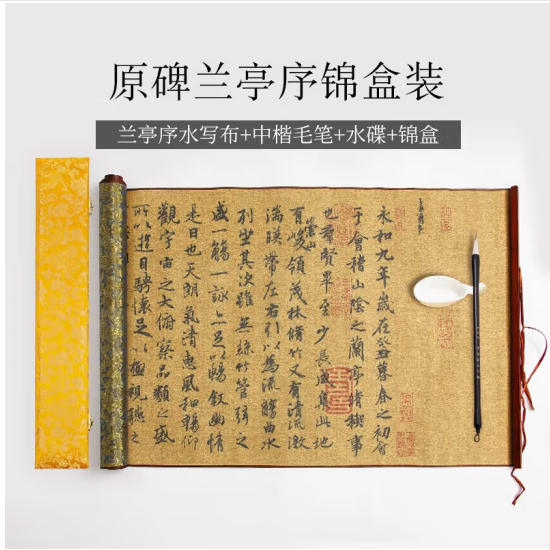 原碑兰亭序锦盒装
兰亭序水写布+中楷毛笔+水碟+锦盒
永和九年歲在癸丑暮春之初會
于會稽山陰之蘭亭脩稧事
也羣賢畢至少長咸集此地
有崇山峻領茂林脩竹又有清流激
湍暎帶左右引以為流觴曲水
列坐其次雖無絲竹管弦之
盛一觴一詠亦足以暢叙幽情
是日也天朗氣清惠風和暢仰
觀宇宙之大俯察品類之盛
所以遊目騁懷足以極視聽之